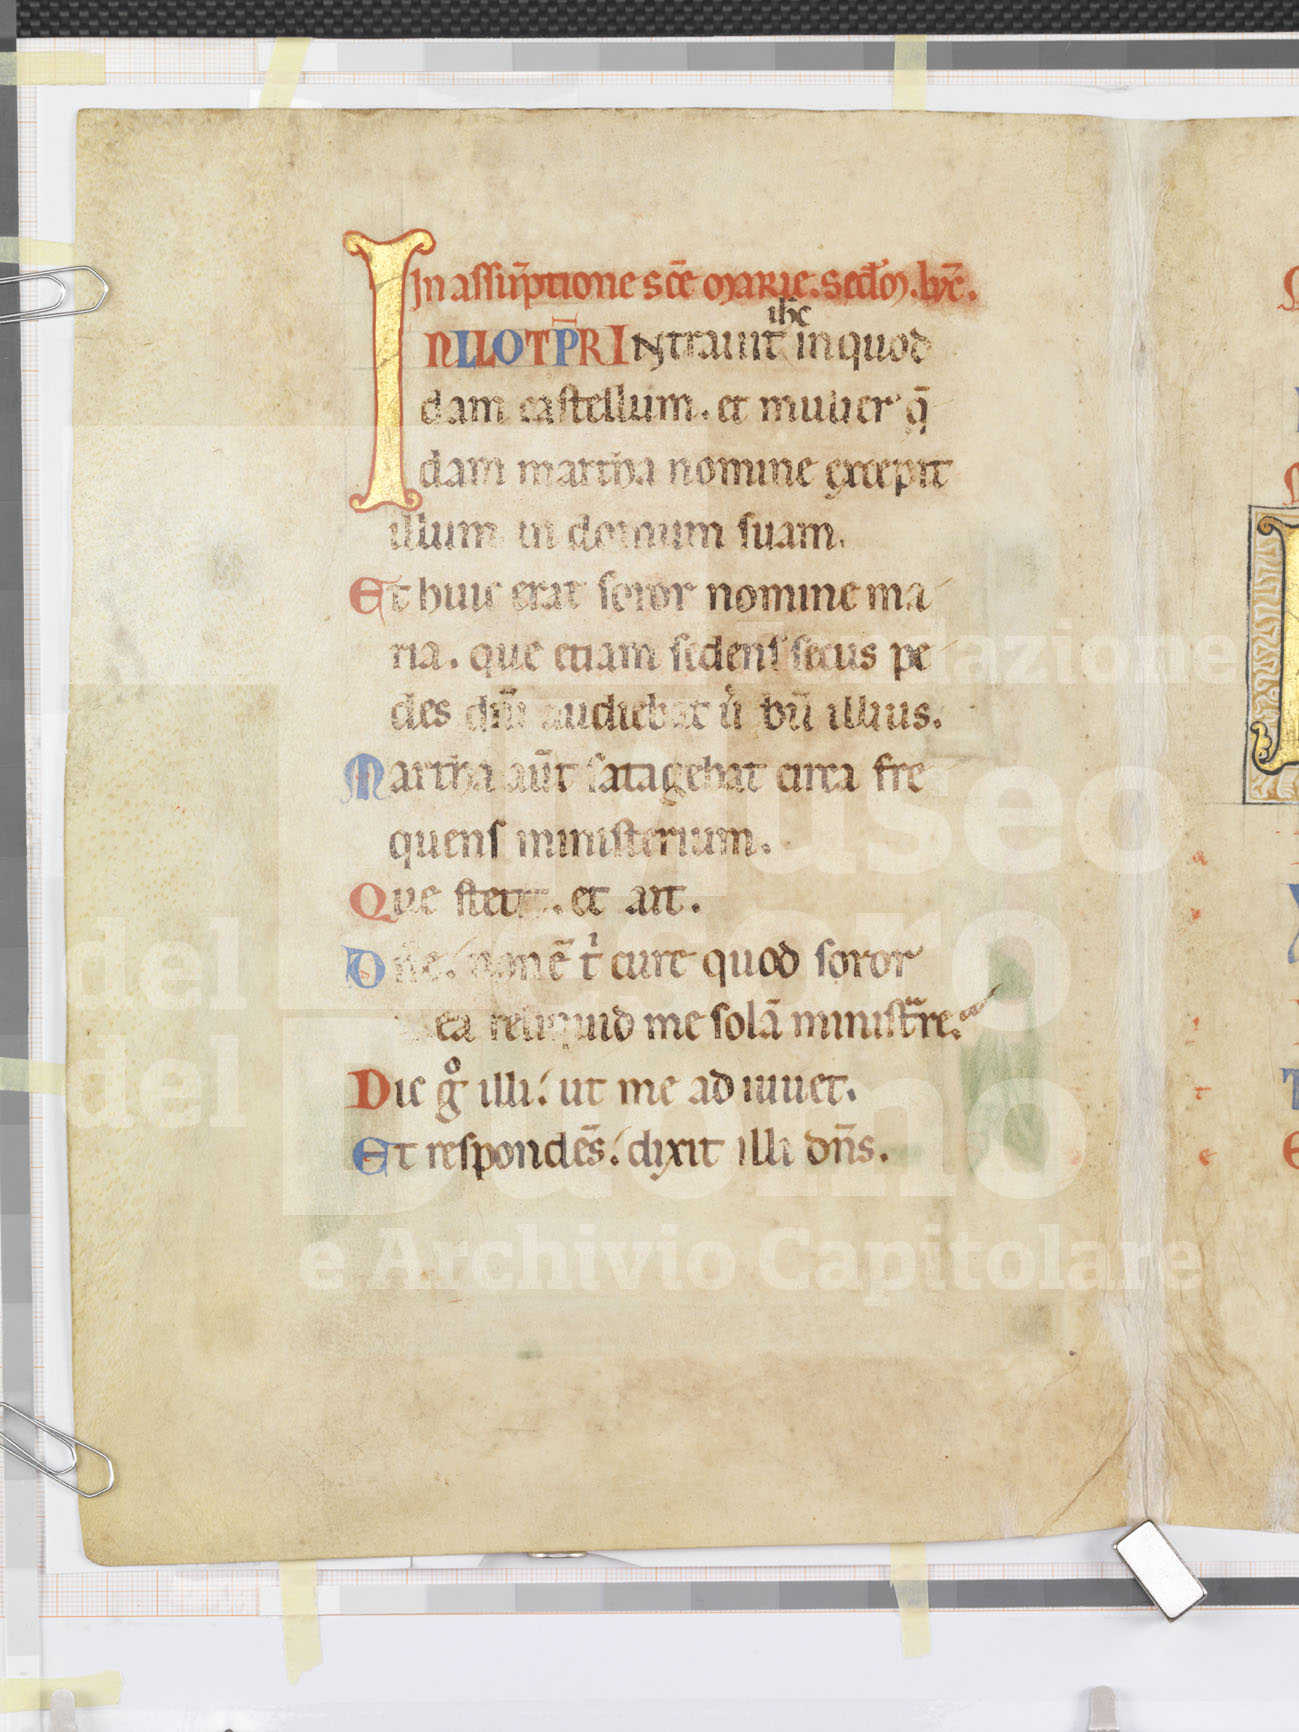 In assūptione sc̄e marie. secd̄m. luc̄.
IN ILLO TP̄R Intrauit ihc in quod
dam castellum. et mulier q̄
dam martha nomine excepit
illum in domum suam.
Et huic erat soror nomine ma
ria. que etiam sedens secus pe
des dn̄i audiebat u̾bū illius.
Martha aūt satagebat circa fre
quens ministerium.
Que stetit. et ait.
Dn̄e. non ē t̾ cure quod soror
mea reliquid me solā ministrare.
Dic gͦ illi. ut me ad iuuet.
Et respondēs. dixit illi dn̄s.
Fondazione
Museo
del Tesoro
del Duomo
e Archivio Capitolare